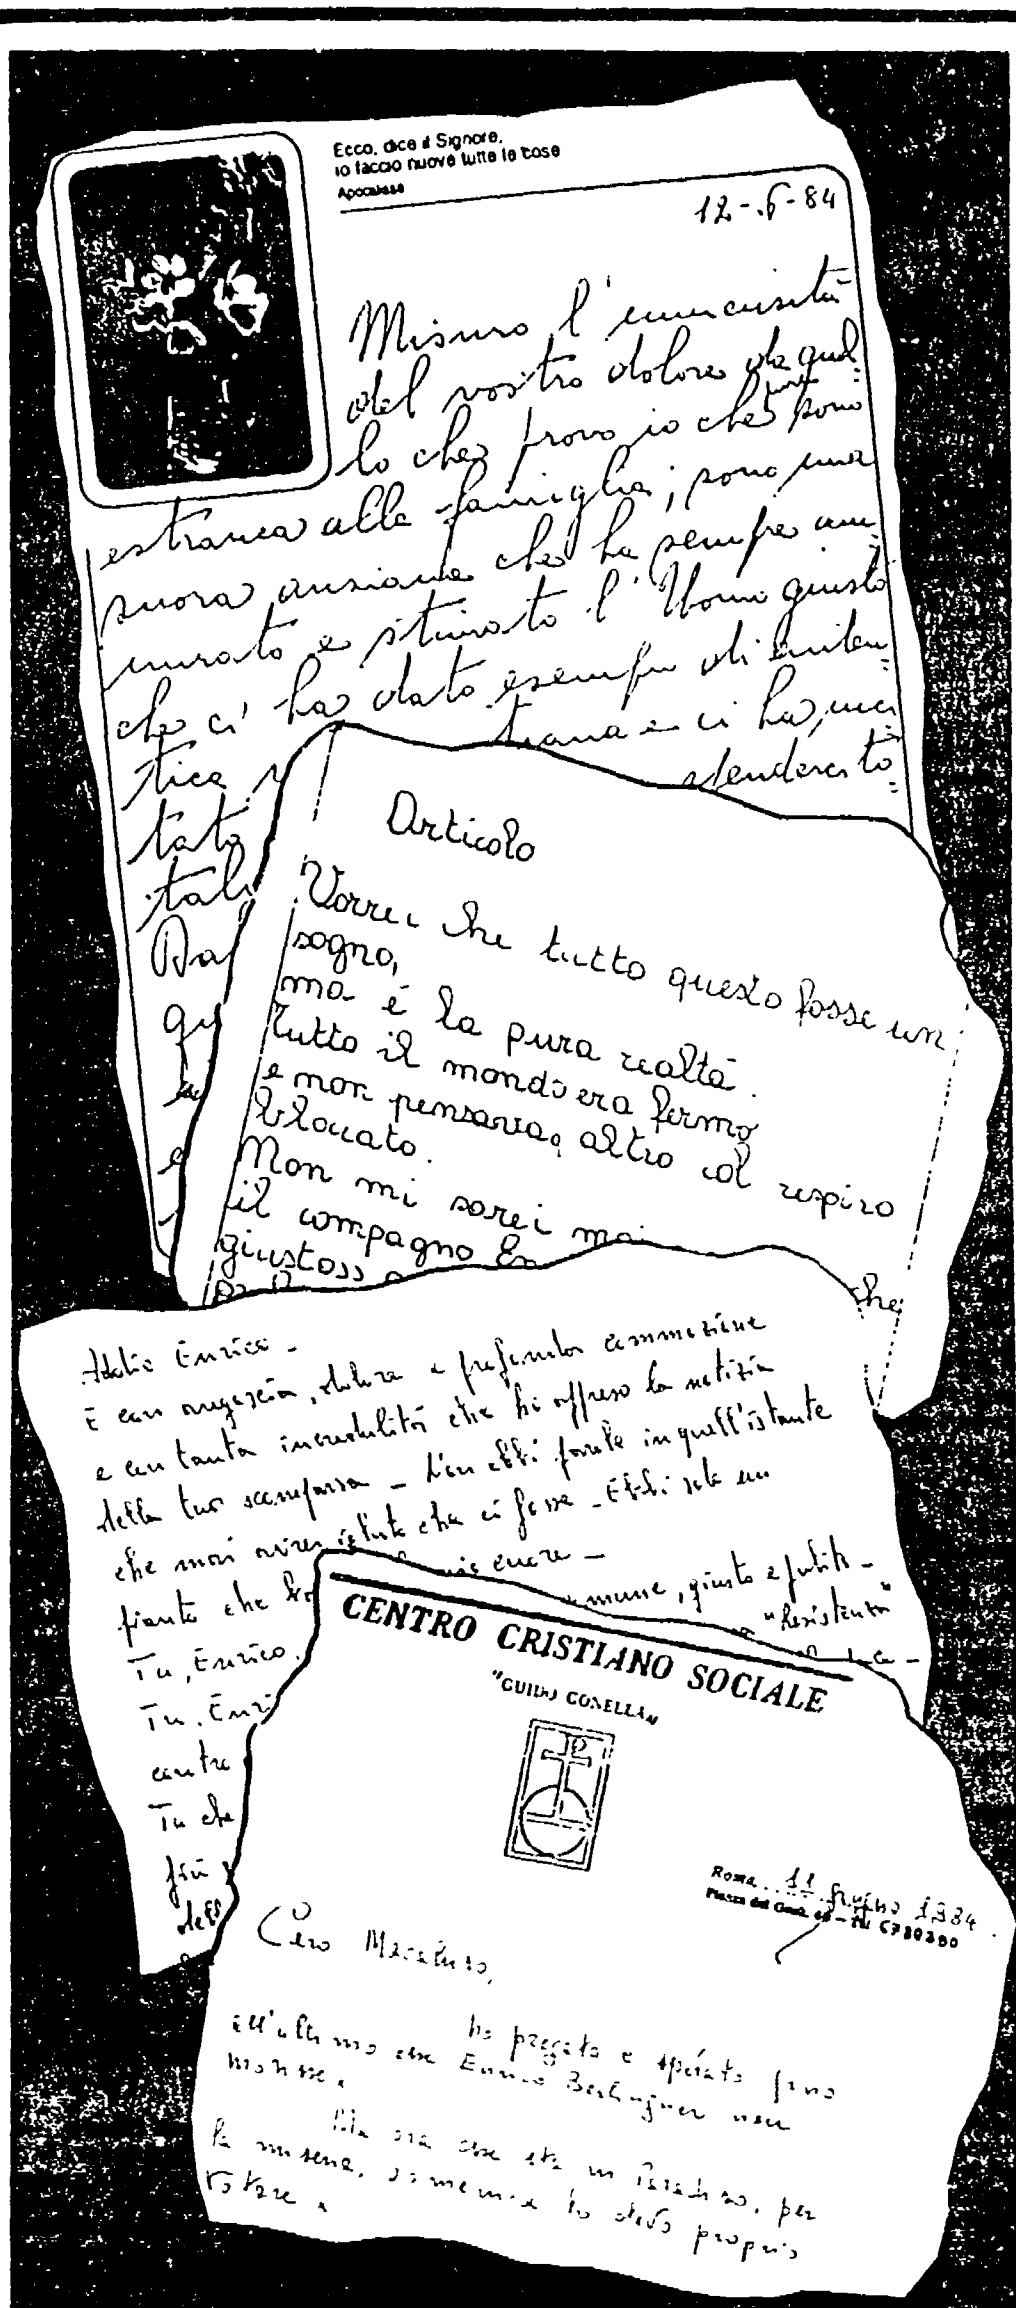 Ecco, dice il Signore,
io faccio nuove tutte le cose
Apocalisse
12-.6-84
Misuro l'immensità
del vostro dolore da quel=
lo che provo io che pure sono
estranea alla famiglia; sono una
suora anziana che ha sempre am=
mirato e stimato l'Uomo giusto
che ci ha dato esempio di auten=
tica
tiana e ci ha, una
tato
to=
tal
Articolo
Vorrei che tutto questo fosse un
sogno,
ma é la pura realtá.
Tutto il mondo era fermo
e non pensava, altro col respiro
bloccato.
Non mi sarei mai
il compagno En
giustoss
che
Addio Enrico -
È con angoscia, dolore e profonda commozione
e con tanta incredulità che ho appreso la notizia
della tua scomparsa - Non ebbi parole in quell'istante
che mai avrei voluto che ci fosse - Ebbi solo un
pianto che
cuore -
Tu, Enrico,
mune, giusto e pulito -
"Resistenza"
Tu, Enri
contro
Tu che
più
dell
CENTRO CRISTIANO SOCIALE
"GUIDO GONELLA"
Roma 11 giugno 1984
Piazza del Gesù, 46 - Tel 6780380
Caro Macaluso,
ho pregato e sperato fino
all'ultimo che Enrico Berlinguer non
morisse.
Ma ora che sta in Paradiso, per
la miseria, almeno lo devo proprio
votare.